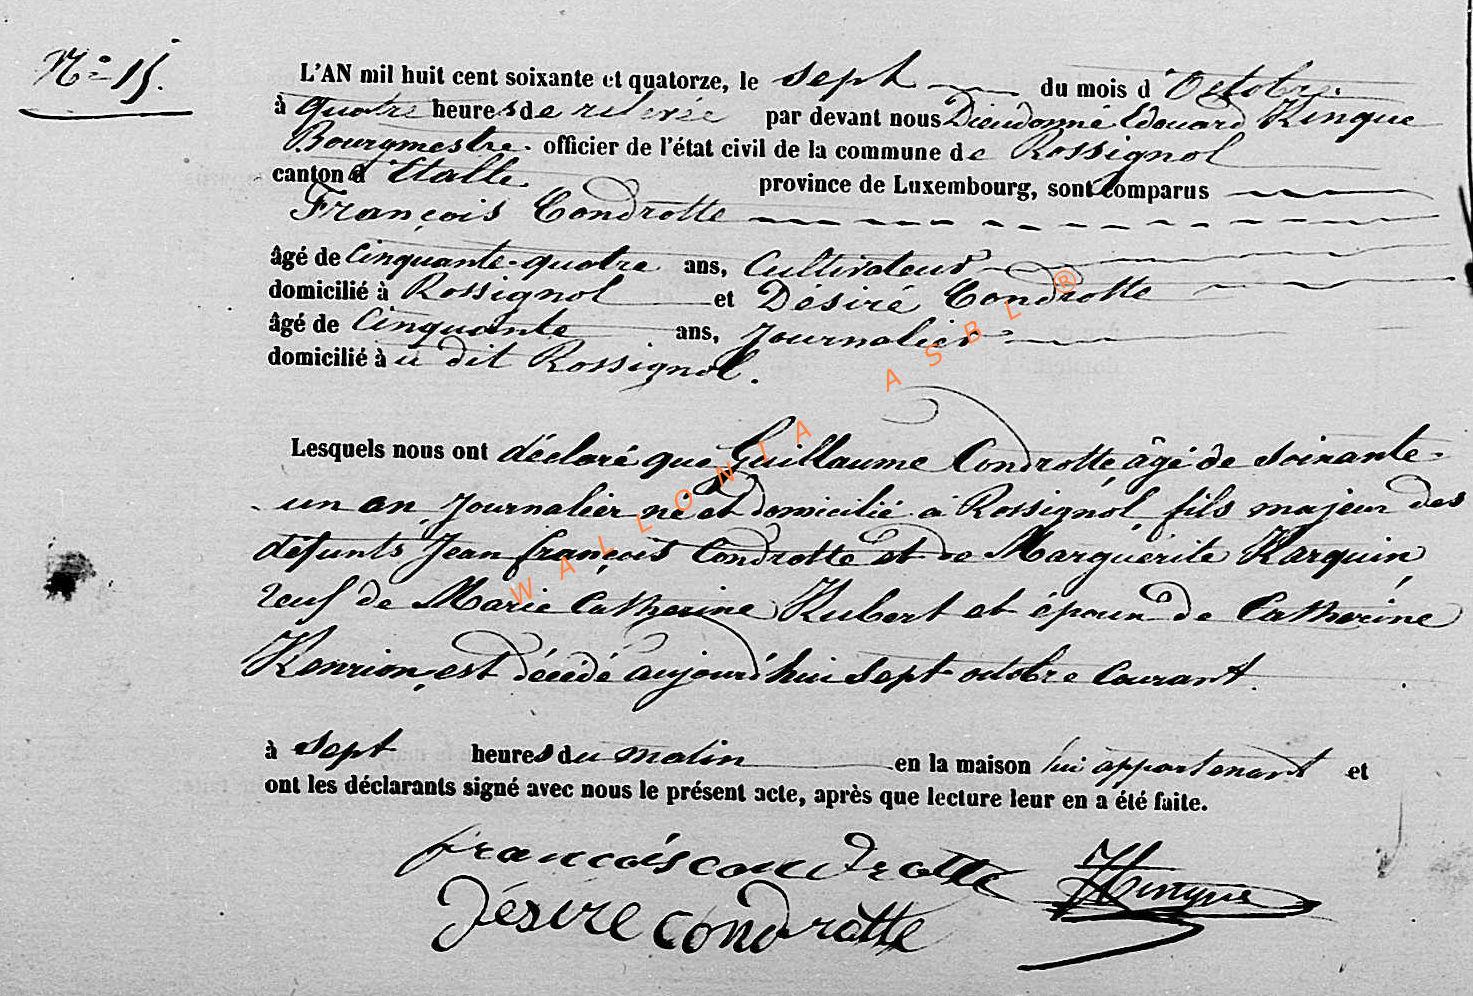 N° 15.
L'AN mil huit cent soixante et quatorze, le sept du mois d'Octobre.
à quatre heures de relevée par devant nous Dieudonné Edouard Hinque
Bourgmestre. officier de l'état civil de la commune de Rossignol
canton d'Etalle province de Luxembourg, sont comparus
François Condrotte
âgé de Cinquante-quatre ans, Cultivateur
domicilié à Rossignol et Désiré Condrotte
âgé de Cinquante ans, Journalier
domicilié à u dit Rossignol.
Lesquels nous ont déclaré que Guillaume Condrotte, âgé de soixante-
un an, Journalier né et domicilié à Rossignol, fils majeur des
défunts Jean françois Condrotte et de Marguérite Harquin
veuf de Marie Catherine Hubert et époux de Catherine
Henrion, est décédé aujourd'hui sept octobre Courant.
à sept heures du matin en la maison lui appartenant et
ont les déclarants signé avec nous le présent acte, après que lecture leur en a été faite.
francois condrotte Hinque
Désiré condrotte
WALLONIA ASBL ®